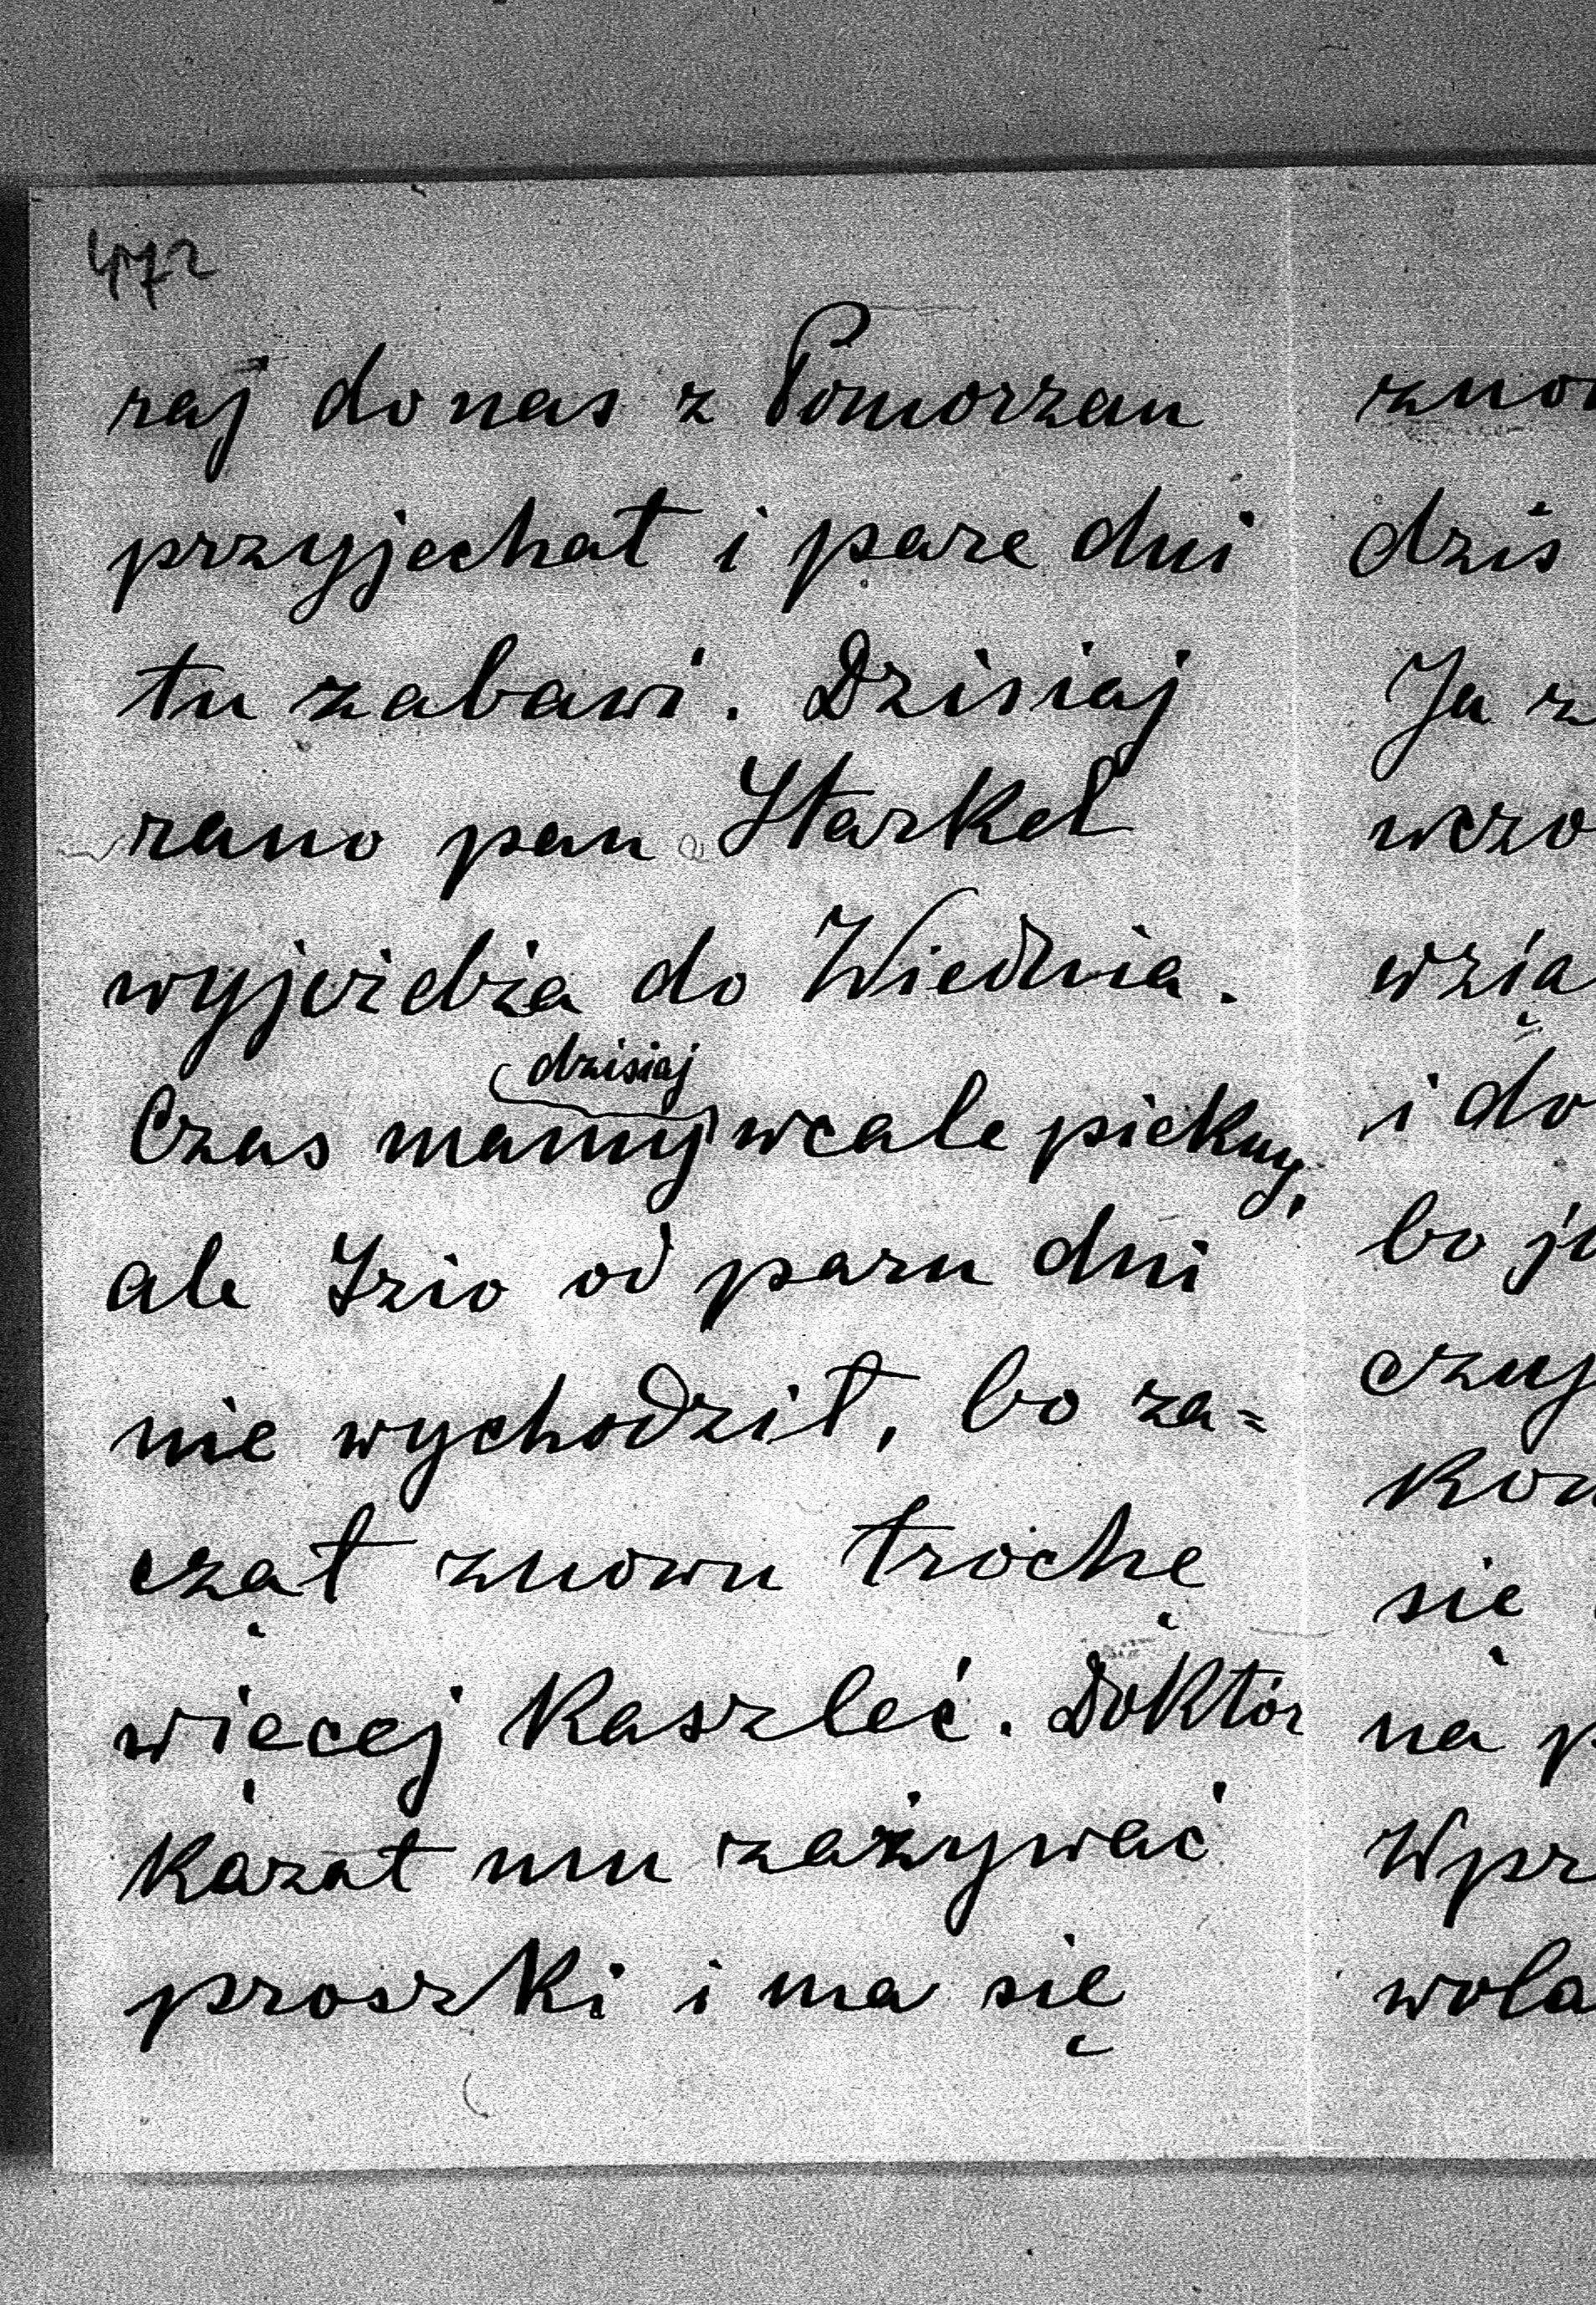 472
raj do nas z Pomorzan
przyjechał i pare dni
tu zabawi. Dzisiaj
rano pan Starkel
wyjeżdża do Wiednia.
dzisiaj
Czas mamy wcale piekny,
ale Izio od paru dni
nie wychodził, bo za=
czął znowu trochę
więcej kaszleć. Doktór
kazał mu zażywać
proszki i ma się
dziś
Ja z
wczo
wzią
i do
bo
czuj
się
na p
Wpr
wola